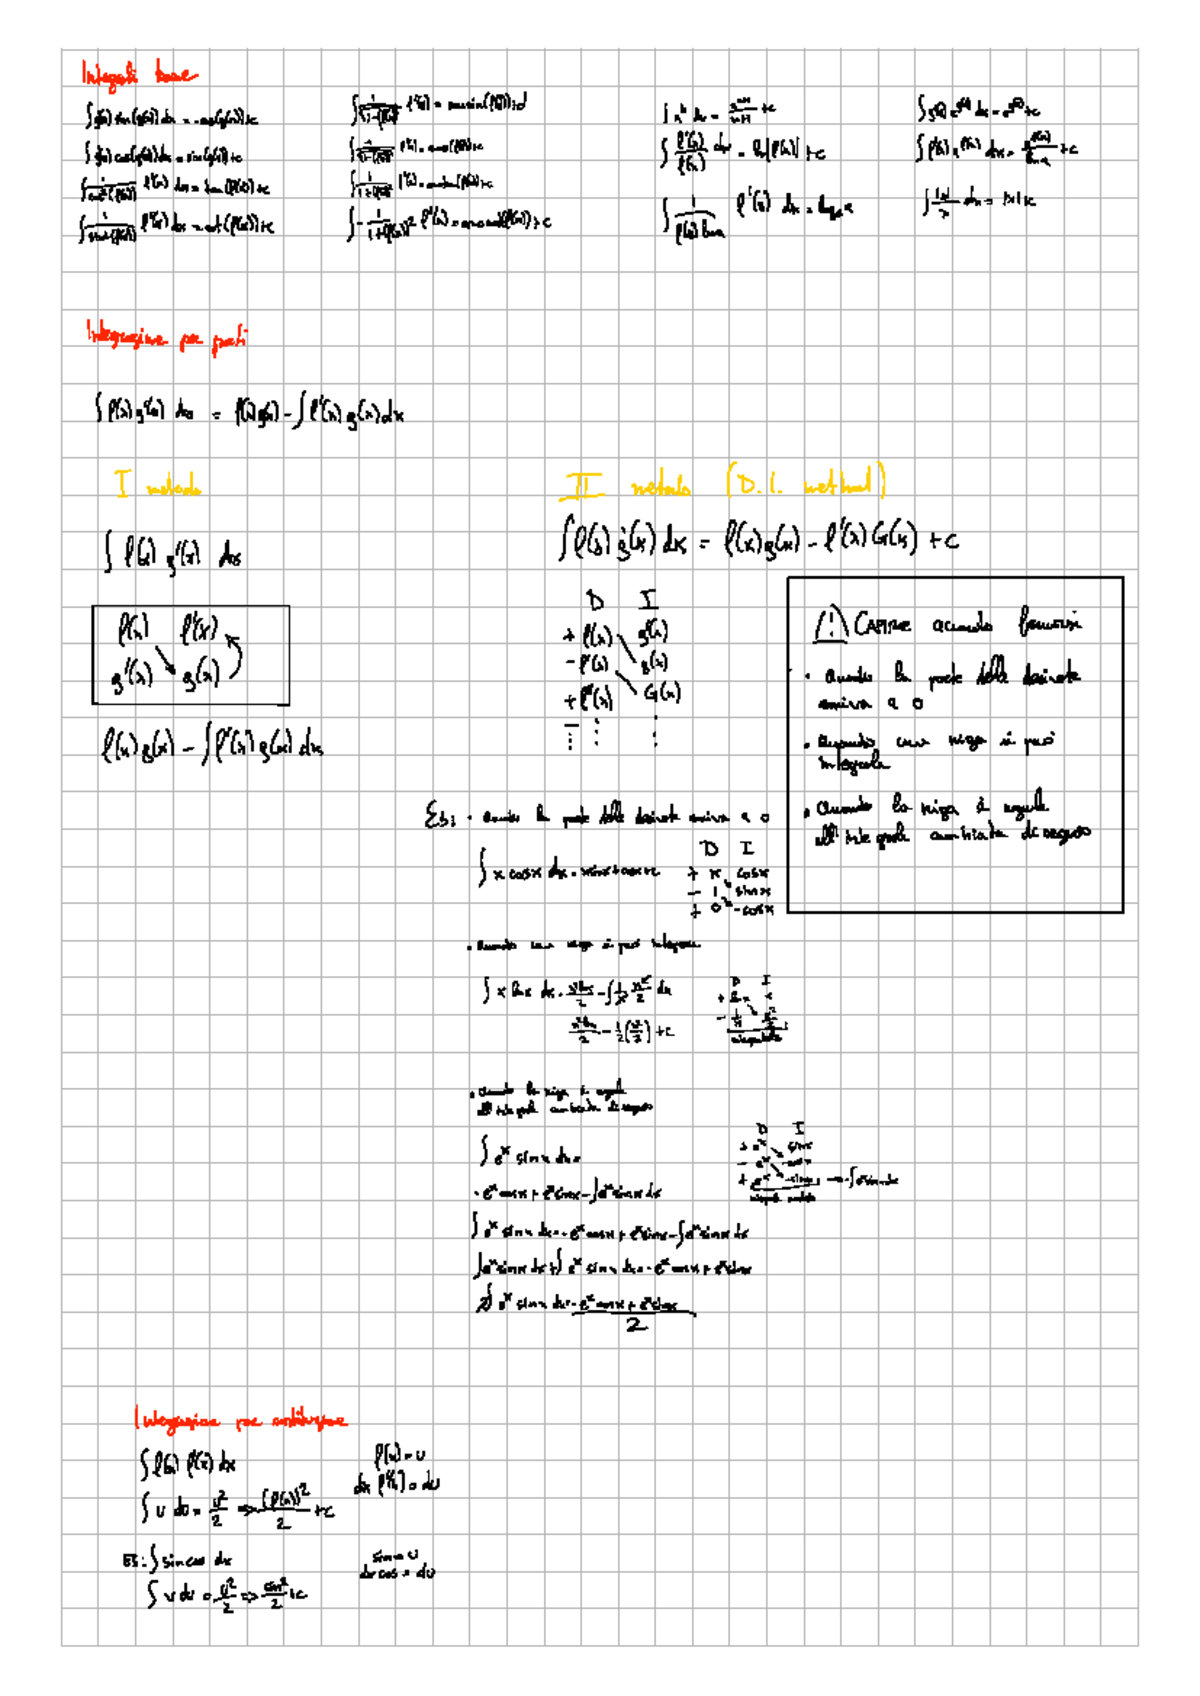 Integrali base
∫g'(x) sin(g(x)) dx = -cos(g(x))+c
∫g'(x) cos(g(x)) dx = sin(g(x))+c
f'(x) dx = tan(f(x))+c
f'(x) dx = cot(f(x))+c
f'(x) = arcsin(f(x))+c
∫ -1/(1+(f(x))² f'(x) = arccot(f(x))+c
∫x^n dx = x^(n+1)/(n+1) +c
∫ f'(x)/f(x) dx = ln|f(x)| +c
∫ 1/(f(x) ln a) f'(x) dx = log_a x
∫ |x|/x dx = |x|+c
Integrazione per parti
∫f(x) g'(x) dx = f(x)g(x) - ∫f'(x) g(x) dx
I metodo
∫ f(x) g'(x) dx
f(x) f'(x)
g'(x) g(x)
f(x) g(x) - ∫f'(x) g(x) dx
II metodo (D.I. method)
∫f(x) g'(x) dx = f(x)g(x) - f'(x) G(x) +c
D I
+ f(x) g'(x)
- f'(x) g(x)
+ f''(x) G(x)
- ⋮ ⋮
⋮
! CAPIRE quando fermarsi
• Quando la parte delle derivate arriva a 0
• Quando una riga si può integrare
• Quando la riga è uguale
all'integrale cambiata di segno
Es: • Quando la parte delle derivate arriva a 0
∫ x cosx dx = xsinx+cosx+c
D I
+ x cosx
- 1 sinx
+ 0 -cosx
• Quando una riga si può integrare
∫ x ln x dx = x² ln x/2 - ∫ 1/x x²/2 dx
x² ln x/2 - 1/2 (x²/2) +c
D I
+ ln x x
- 1/x x²/2
• Quando la riga è uguale
all'integrale cambiata di segno
∫ e^x sin x dx =
- e^x cosx + e^x sinx - ∫e^x sinx dx
∫ e^x sin x dx = -e^x cosx + e^x sinx - ∫e^x sinx dx
∫e^x sinx dx + ∫ e^x sin x dx = -e^x cosx + e^x sinx
2∫ e^x sin x dx = -e^x cosx + e^x sinx
2
D I
+ e^x sinx
- e^x -cosx
+ e^x -sinx → -∫e^x sinx dx
Integrazione per sostituzione
∫f(x) f'(x) dx
f(x) = u
dx f'(x) = du
∫ u du = u²/2 ⇒ (f(x))²/2 +c
ES: ∫ sin cos dx
sin = u
dx cos = du
∫ u du = u²/2 ⇒ sin²/2 +c